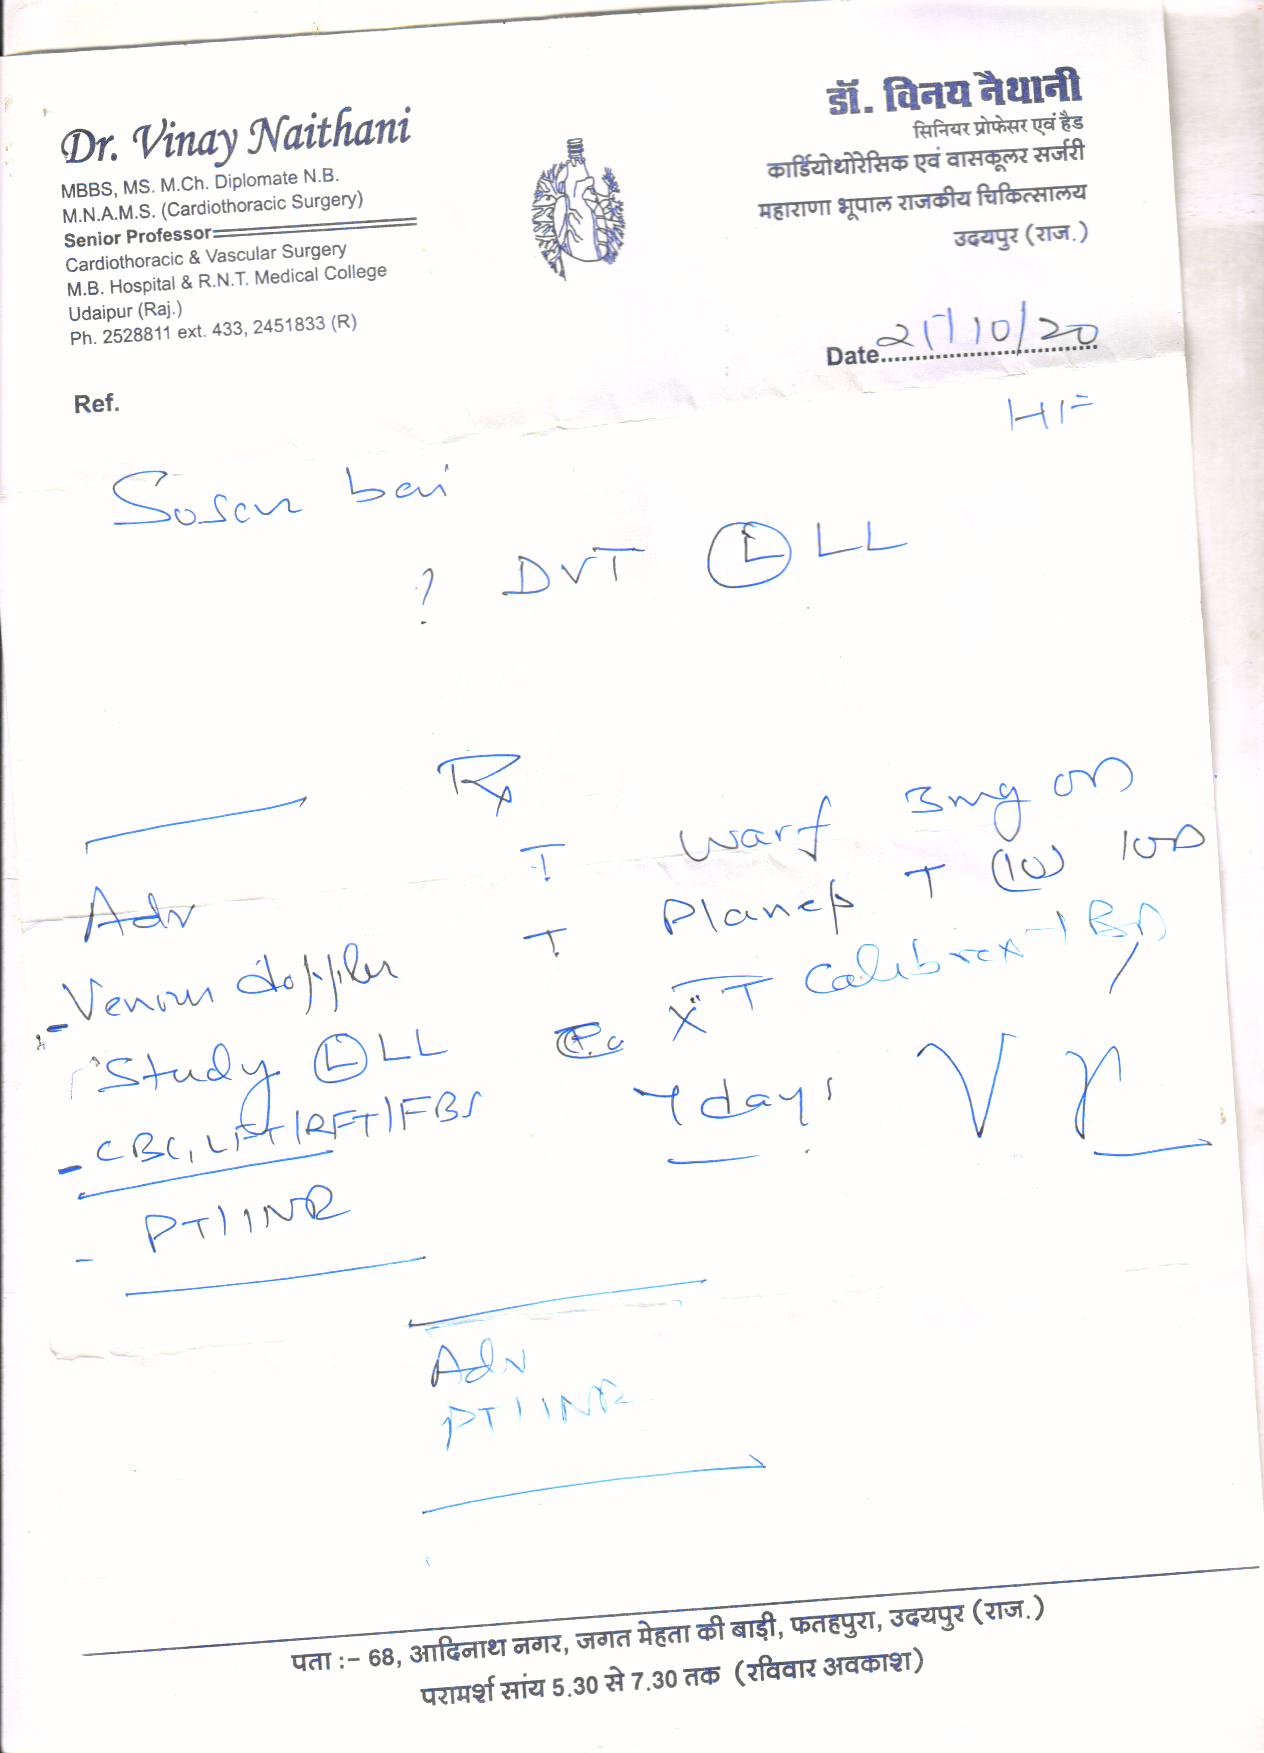 Dr. Vinay Naithani
MBBS, MS. M.Ch. Diplomate N.B.
M.N.A.M.S. (Cardiothoracic Surgery)
Senior Professor
Cardiothoracic & Vascular Surgery
M.B. Hospital & R.N.T. Medical College
Udaipur (Raj.)
Ph. 2528811 ext. 433, 2451833 (R)
डॉ. विनय नैथानी
सिनियर प्रोफेसर एवं हैड
कार्डियोथोरेसिक एवं वासकूलर सर्जरी
महाराणा भूपाल राजकीय चिकित्सालय
उदयपुर (राज.)
Date 21/10/20
Ref.
bai
? DVT Ⓛ LL
Rx
T Warf 3mg OD
T Planep T (10) 10D
T Calibrex-1 BD
7 days
Adv
- Venous doppler
Study Ⓛ LL
- CBC, LFT/RFT/FBS
- PT/INR
Adv
PT/INR
पता :– 68, आदिनाथ नगर, जगत मेहता की बाड़ी, फतहपुरा, उदयपुर (राज.)
परामर्श सांय 5.30 से 7.30 तक (रविवार अवकाश)